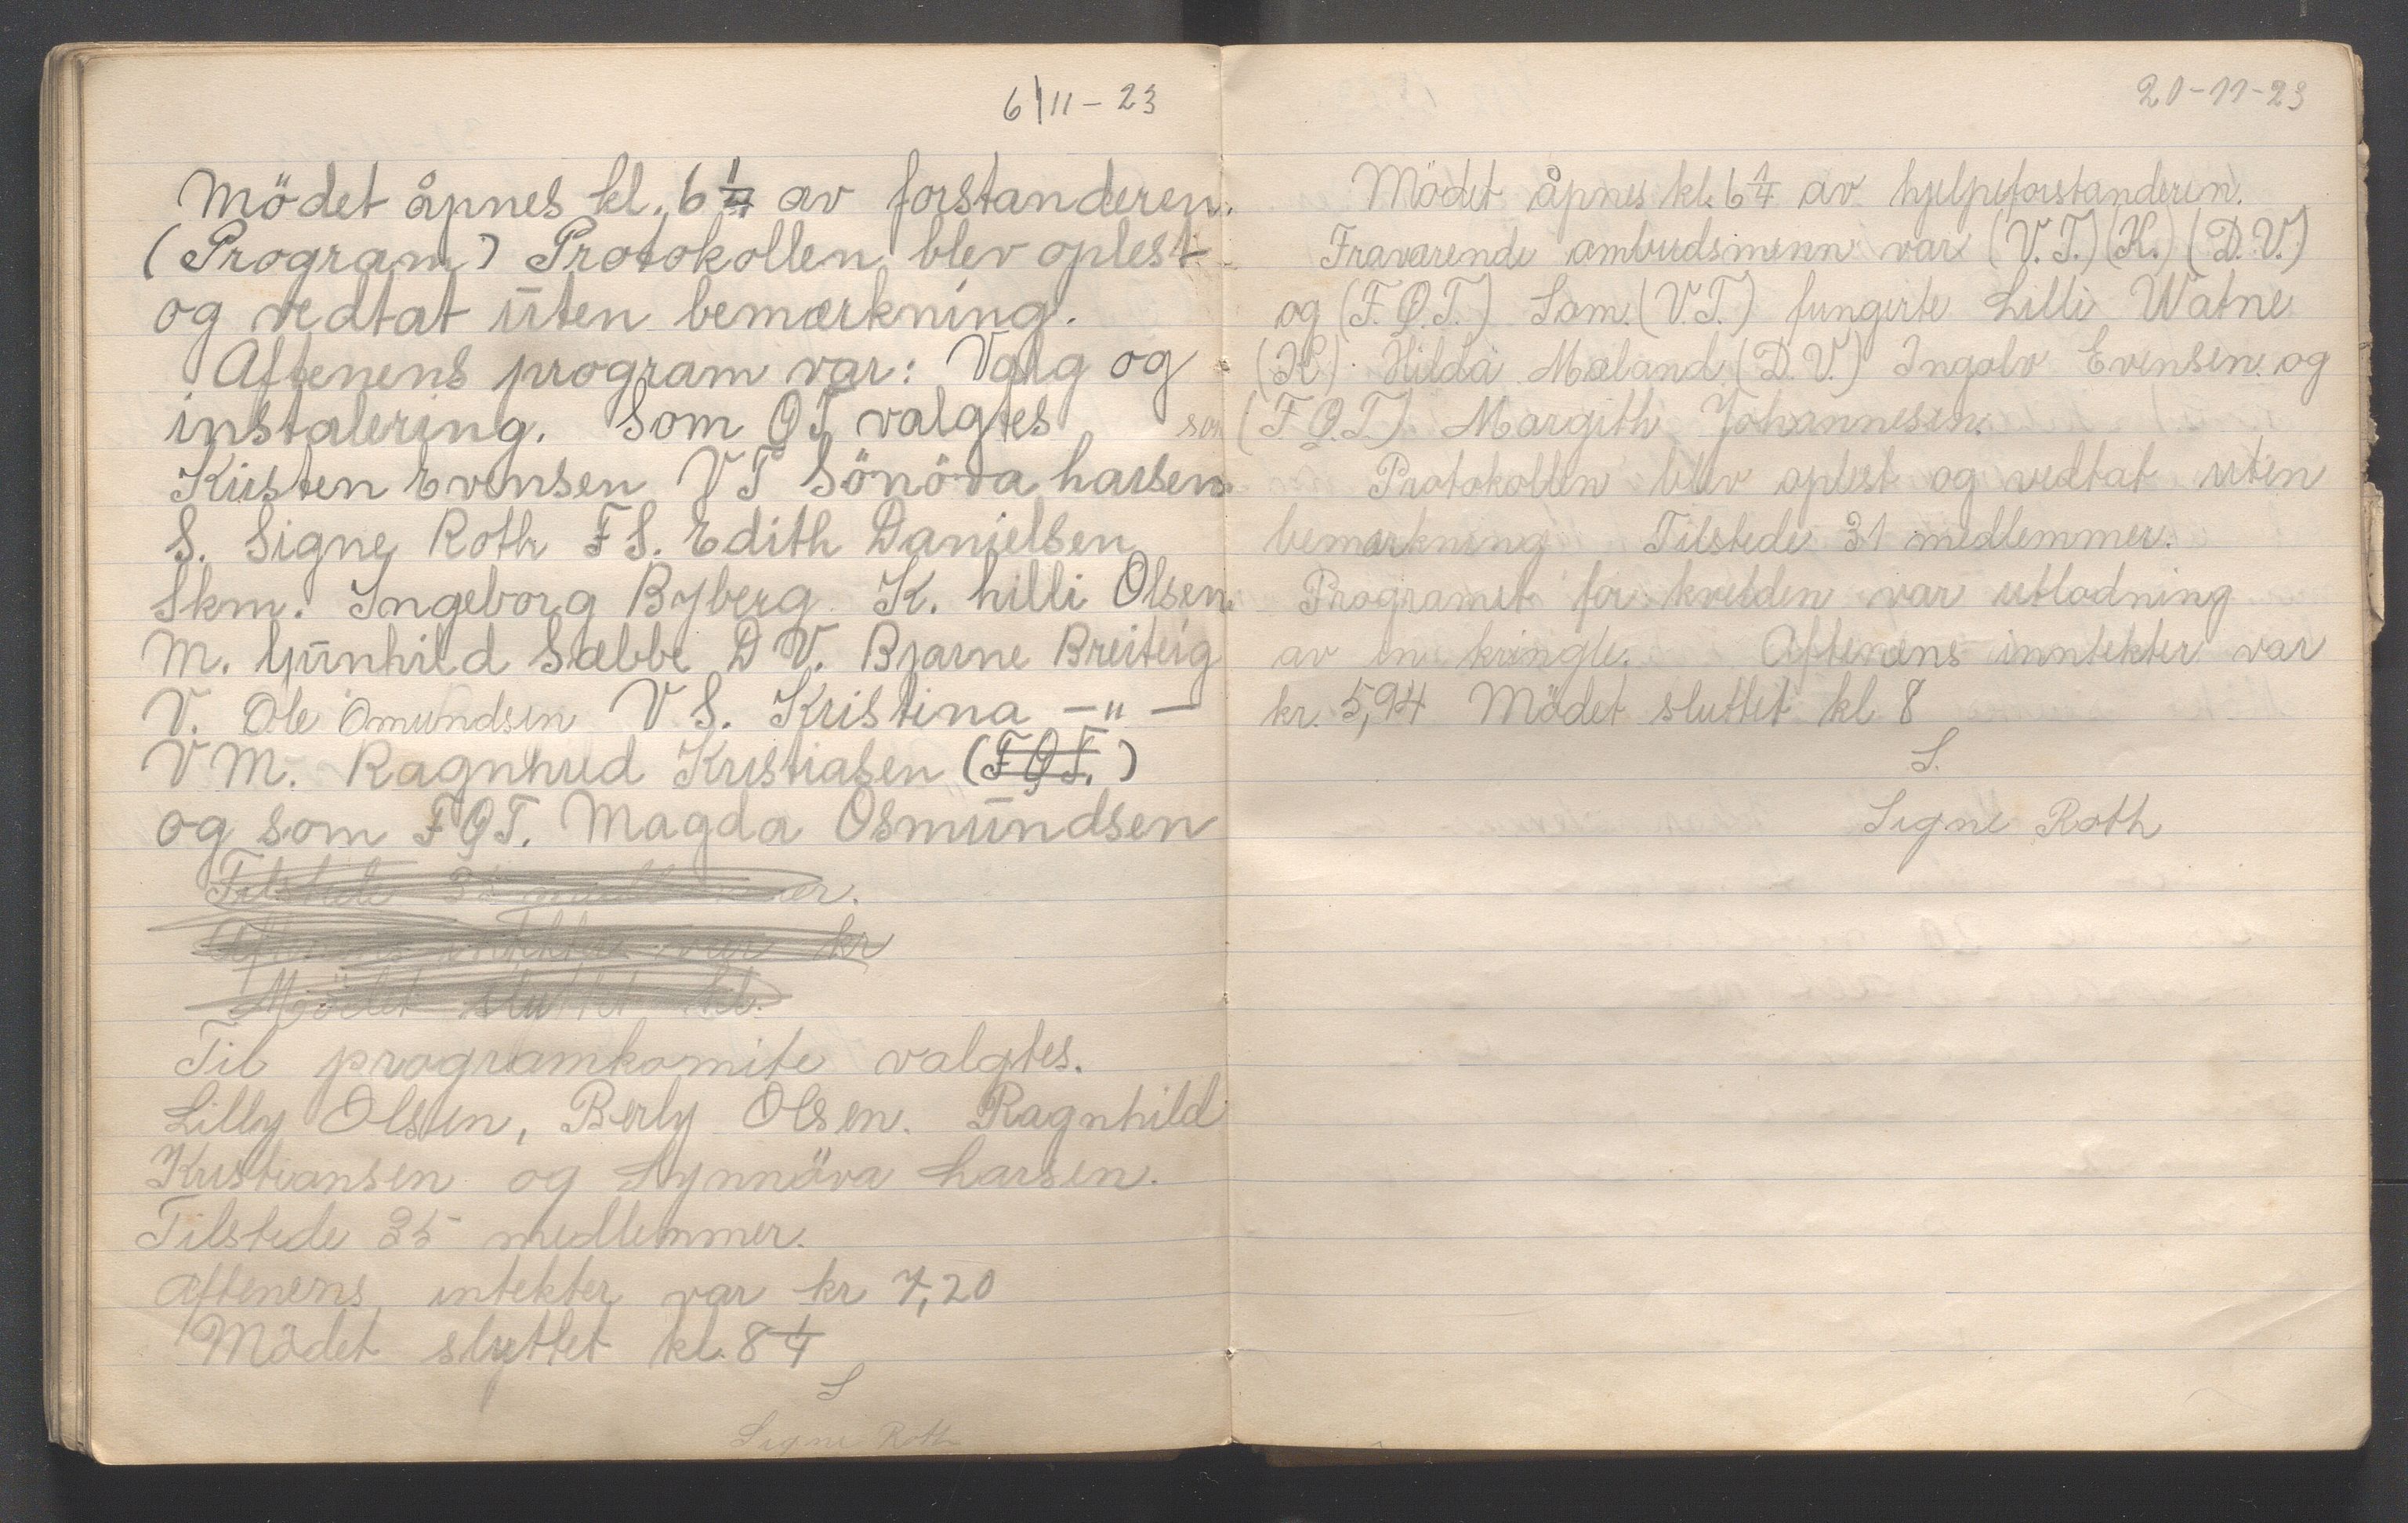 6/11-23
Mödet åpnes kl. 6 1/4 av forstanderen.
(Program) Protokollen blev oplest
og vedtat ūten bemærkning.
Aftenens program var: Valg og
instalering. Som QT valgtes
Kirsten Evensen VT Sönöva Larsen
S. Signe Roth FS. Edith Danielsen
Skm. Ingeborg Byberg K. Lilli Olsen.
M. Gūnhild Sæbbe D V. Bjarne Breiteig
V. Ole Omundsen V S. Kristina -"-
V M. Ragnhild Kristiasen (FQT.)
og som FQT. Magda Osmūndsen
Tilstede 35 medlemmer.
Aftenens intekter var kr
Mödet sluttet kl.
Til programkomite valgtes.
Lilly Olsen, Berly Olsen. Ragnhild
Kristiansen og Synnöva Larsen.
Tilstede 35 medlemmer.
Aftenens intekter var kr 7,20
Mödet sluttet kl. 8 1/4
S
Signe Roth
20-11-23
Mödet åpnes kl. 6 1/4 av hjelpeforstanderen.
Fraværende ombudsmenn var (V.T.) (K.) (D.V.)
og (F.Q.T.) Som (V.T.) fungerte Lilli Watne
(K) Hilda Mæland (D.V.) Ingolv Evensen og
(F.Q.T.) Margith Johannesen.
Protokollen blev oplest og vedtat uten
bemærkning Tilstede 31 medlemmer.
Programet for kvelden var utlodning
av en kringle. Aftenens inntekter var
kr. 5,94 Mödet sluttet kl 8
S.
Signe Roth